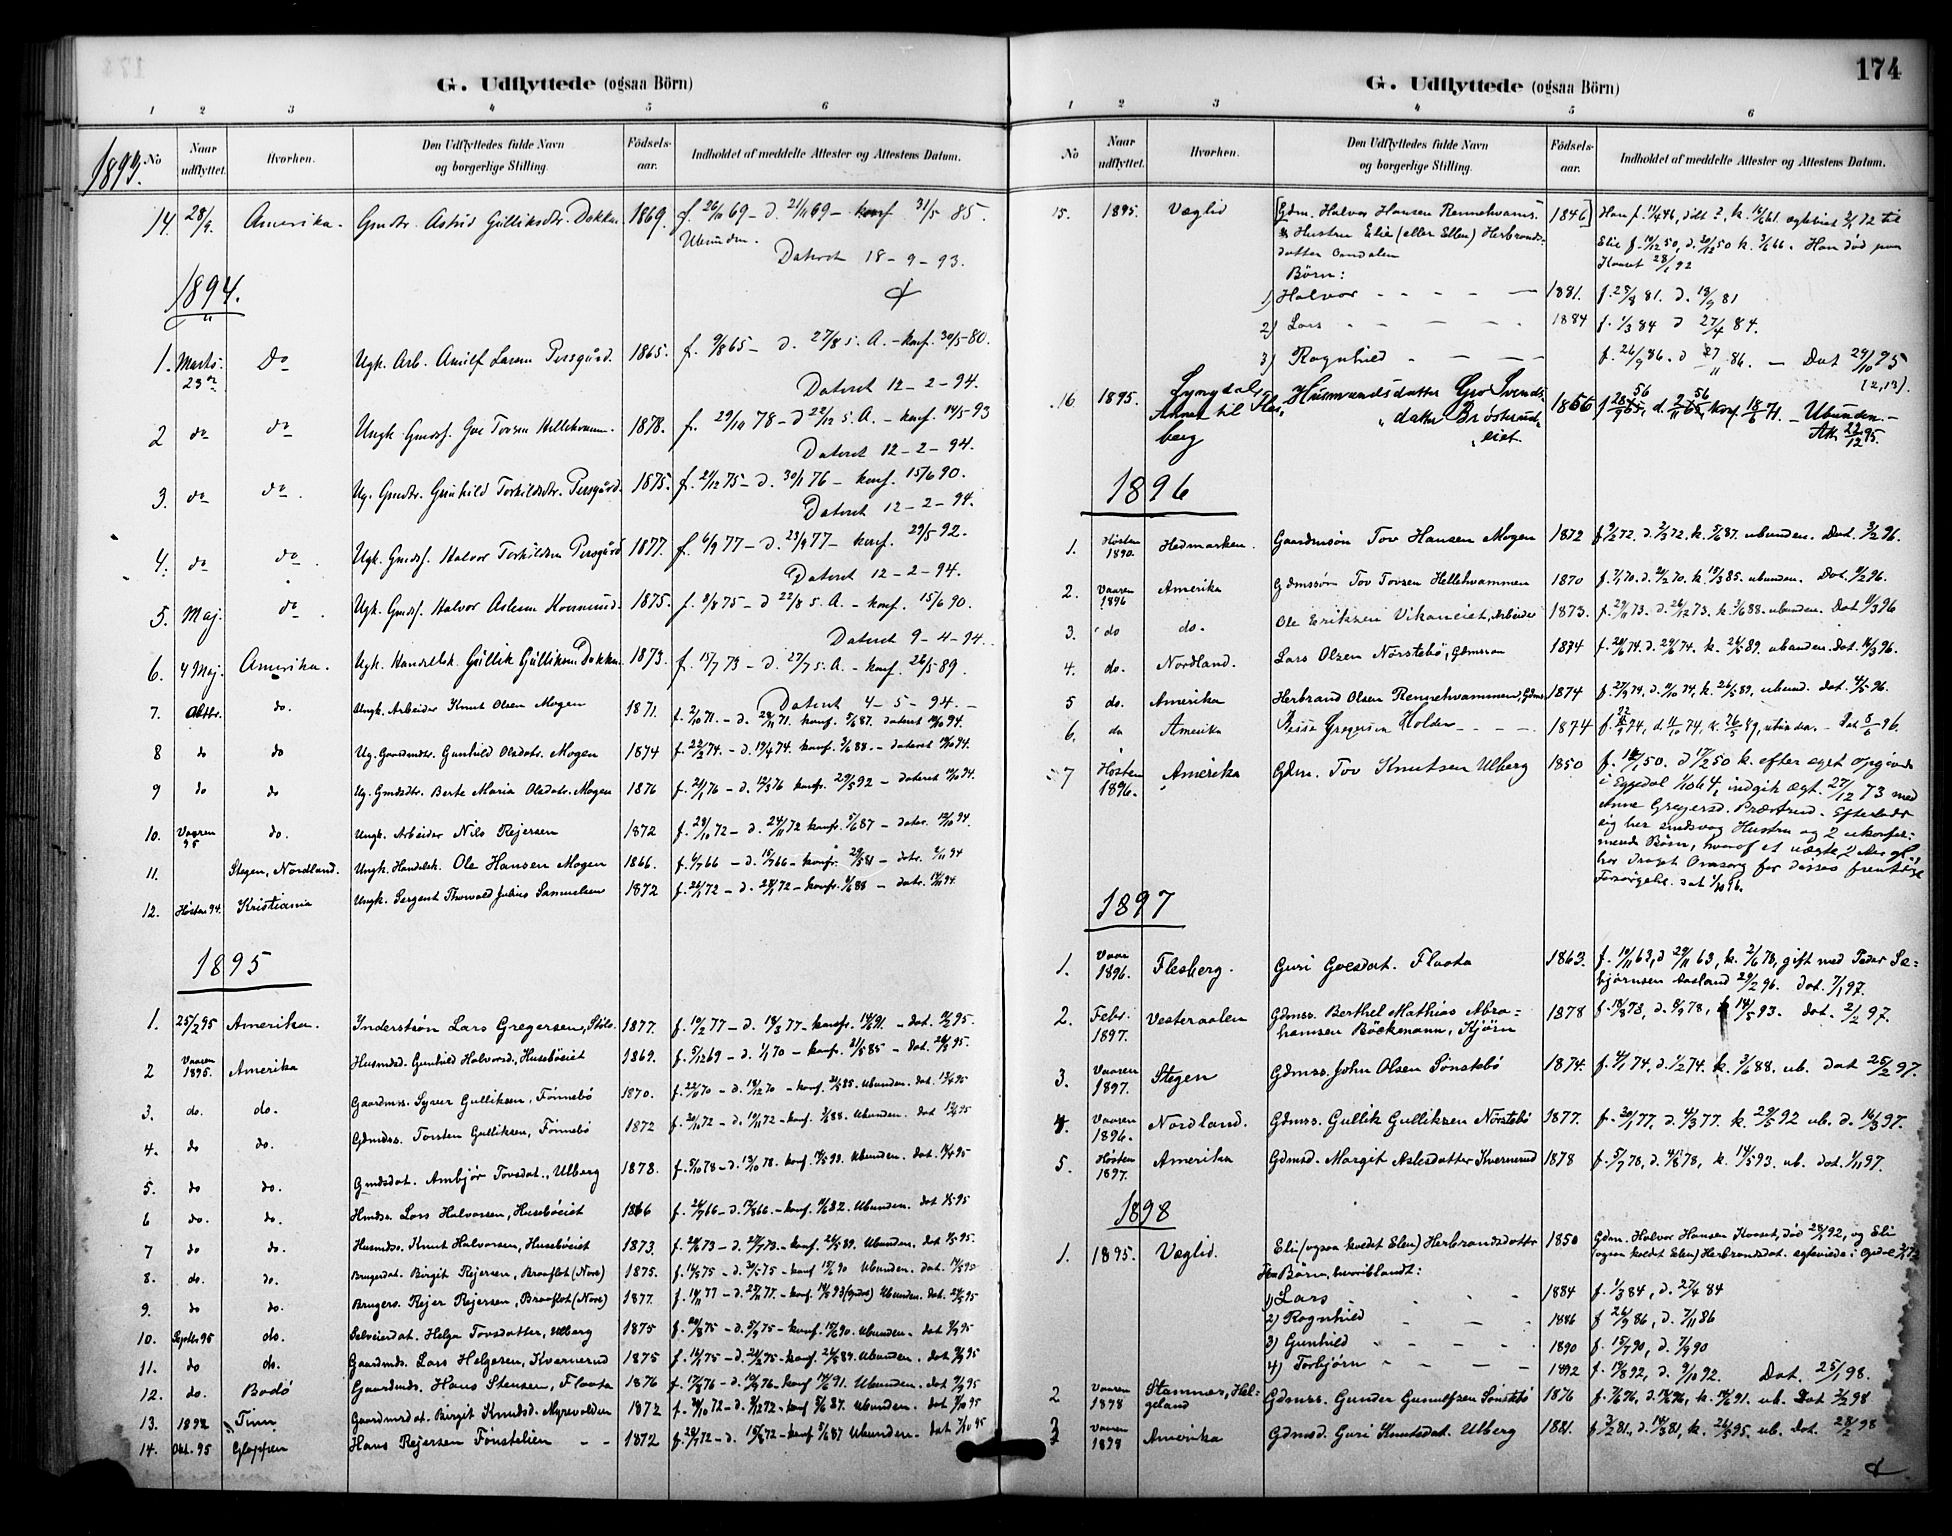 G. Udflyttede (ogsaa Börn)
1 2 3 4 5 6
1893. No Naar udflyttet. Hvorhen. Den Udflyttedes fulde Navn og borgerlige Stilling. Fødsels-aar. Indholdet af meddelte Attester og Attestens Datum.
14. 28/9. Amerika. Gmdtr. Astrid Gulliksdtr. Dokka 1869. f. 26/10 69 – d. 21/11 69 – konf 31/5 85.
Ubunden.
Dateret 18 – 9 – 93.
1894.
1. Marts 23de Do Ugk. Arb. Arnilf Larsen Persgård. 1865. f. 9/8 65 – d. 27/8 s. A. – konf. 30/5 – 80.
Dateret 12 – 2 – 94.
2 do do Ungk. Gmdsf. Gve Tovsen Hellehvam. 1878. f. 29/10 78 – d 22/12 s. A. – konf. 14/5 – 93
Dateret 12 – 2 – 94.
3. do do. Ug. Gmdtr. Gunhild Torkildsdtr. Persgård. 1875. f. 21/12 75 – d. 30/1 76 – konf. 15/6 90.
Dateret 12 – 2 – 94.
4. do do. Ugk. Gmdsf. Halvor Torkildsen Persgård 1877. f. 6/9 77 – d. 23/9 77 – konf. 29/5 92.
Dateret 12 – 2 – 94.
5. Maj. do. Ugk. Gmdsf. Halvor Aslesen 1875. f. 2/8 75 – d 22/8 s. A. – konf. 15/6 90.
Dateret 9 – 4 – 94.
6. 4 Maj. Amerika. Ugk. Handelsk. Gullik Gulliksen Dokka 1873. f. 15/7 73 – d. 27/7 s. A. – konf. 26/5 89.
Dateret 4 – 5 – 94. –
7. Oktbr. do. Ungk. Arbeider Knut Olsen Mogen 1871. f. 2/10 71. – d. 29/11 71. konf. 5/6 87. dateret 10/10 94.
8 do do Ug. Gaardmdtr. Gunhild Olsdatr. Mogen 1874 f. 22/2 74. – d. 19/4 74. konf. 3/6 88. – dateret 10/10 94.
9 do do Ug. Gmdsdtr. Berte Maria Olsdatr. Mogen 1876 f. 24/1 76 – d. 12/3 76 konfr. 29/5 92 – dateret 10/10 94.
10. Vaaren 95 do. Ungk. Arbeider Nils Rejersen 1872 f. 28/10 72 – d. 24/11 72 konfr. 5/6 87 – datr. 12/10 94.
11. Stegen, Nordland. Ungk. Handelsk. Ole Hansen Mogen 1866. f. 6/7 66 – d. 15/7 66 – konfr. 29/5 81 – datr. 2/11 94
12. Høsten 94. Kristiania Ungk. Sergent Thorvald Julius Samuelsen 1872 f. 24/1 72 – d. 28/1 72 – konfr. 3/6 88 – datr. 14/11 94.
1895
1. 25/2 95 Amerika. Inderstsøn Lars Gregersen, 1877. f. 10/2 77 – d. 18/3 77 – konfr. 14/6 91. – dat. 11/2 95.
2 Vaaren 1895. Amerika Husmdsd. Gunhild Halvorsd., Husebøeiet 1869. f. 5/12 69 – d. 1/1 70 – konfr. 31/5 85 – dat. 26/3 95.
3. do. do. Gaardmss. Syver Gulliksen, Fønnebø 1870. f. 22/11 70 – d. 18/12 70 – konf. 31/5 85. Ubunden. dat. 13/4 95
4. do do. Gdmdss. Torsten Gulliksen, Fønnebø 1872 f. 30/10 72 – d. 10/11 72 – konf. 3/6 88. Ubunden. Dat 13/4 95
5. do do. Gmdsdat. Ambjør Tovsdat., Ulberg 1878. f. 5/10 78 – d. 13/10 78. konf. 14/5 93. Ubunden. dat. 14/4 95
6 do. do. Hmdss. Lars Halvorsen, Husebøeiet 1866 f. 26/7 66 – d. 12/8 66. – konf. 4/6 82. Ubunden. dat 1/5 95
7 do do. Husmdss. Knut Halvorsen, Husebøeiet 1873. f. 24/6 73 – d. 27/7 73 – konf. 26/5 89. Ubunden. dat 1/5 95.
8. do. do. Brugerdat. Birgit Rejersen, Braaflot (Nore) 1875. f. 14/5 75 – d. 30/5 75 – konf 15/6 90 Ubunden. dat. 14/5 95
9. do do. Brugers. Rejer Rejersen, Braaflot (Nore) 1877. f. 14/11 77 – d. 25/11 77. – konf. 14/5 93 Ubunden. dat. 24/5 95
10. Septbr. 95 do. Selveierdat. Helga Tovsdatter, Ulberg 1875 f. 20/8 75 – d. 5/9 75 – konf. 15/6 90. Ubunden. dat. 9/9 95
11. do do. Gaardmds. Lars Helgesen, Kvernerud 1875 f. 14/1 75 – d. 24/2 75 – konf. 26/5 89. Ubunden. dat 9/9 95
12. do. Bodö Gaardmds. Hans Stensen, Flaata 1876 f. 17/8 76 – d. 10/9 76 – konf 14/6 91. Ubunden. dat 9/9 95
13. 1892 Tinn Gaardmsdat. Birgit Knudsd. Myrevolden 1872 f. 3/10 72 – d. 8/12 72 – konf 5/6 87. Ubunden. dat 7/10 95
14. Okt. 95 Gloppen Hans Rejersen Fønstelien – – 1872 f. 26/7 72 – d. 15/8 72 – konf 5/6 87 Ubunden. dat 7/10 95
G. Udflyttede (ogsaa Börn) 174
1 2 3 4 5 6
No Naar udflyttet. Hvorhen. Den Udflyttedes fulde Navn og borgerlige Stilling. Fødsels-aar. Indholdet af meddelte Attester og Attestens Datum.
15. 1895. Veglid [Gdm. Halvor Hansen Rennehvams. 1846] Han f. 11/4 46, døbt ?, k. 16/6 61. ægteviet 2/1 72 til
Hustru Elie (eller Ellen) Herbrands- Elie f. 10/12 50, d. 30/12 50 k. 3/6 66. Han død paa
datter Aandalen 28/1 92
Børn:
1) Halvor – – – – 1881. f. 28/8 81. d. 18/9 81
2) Lars – – – – 1884 f. 1/3 84 d 27/4 84.
3) Ragnhild – – – f. 26/9 86. d 27/11 86. – Dat 29/10 95
(2,13).
16. 1895. Lyngdals Annex til Fles- Husmandsdatter Gro Svends- 1856 f 28/9 56, d. 2/11 56, konf 18/6 71 – Ubunden –
berg datter Brøsterud- Att. 22/12 95.
eiet.
1896
1. Høsten 1890. Hedmarken. Gaardmsøn Tov Hansen Mogen 1872 f 9/2 72, d. 3/3 72. k. 5/6 87. ubunden. Dat. 3/2 96.
2. Vaaren 1896 Amerika Gdmssøn Tov Tovsen Hellehvammen 1870 f. 7/1 70. d. 20/2 70. k. 15/3 85. ubunden. Dat. 9/2 96.
3. do do. Ole Eriksen Vikaneiet, Arbeider 1873. f. 29/11 73. d. 26/12 73. k. 3/6 88. ubunden. Dat 11/3 96
4. do. Nordland. Lars Olsen Norstebö, Gdmsøn 1874 f. 20/6 74. d. 29/6 74. k. 26/5 89. ubunden. Dat. 16/3 96.
5 do. Amerika Herbrand Olsen Rennehvammen, Gdms. 1874 f. 27/9 74, d. 11/10 74, k. 26/5 89, ubund. dat. 4/5 96.
6. do Amerika Gregersen Holden – – – 1874 f. 22/9 74, d. 4/10 74, k. 26/5 89, ubunden. – Dat 8/6 96.
7 Høsten 1896. Amerika Gdm. Tov Knutsen Ulberg 1850 f. 14/1 50. d 17/2 50 k. efter eget opgivende
i Eggedal 1/10 64, indgik ægt. 27/12 73 med
Anne Gregersd. Prestrud. Efterlader
sig her sindsvag Hustru og 2 ukonfir-
merede Børn, hvoraf et uægte
har dragt Omsorg for disses fremtidige
Forsørgelse. dat 1/10 96.
1897
1. Vaar 1896. Flesberg. Guri Goesdat. Flaata 1863. f. 10/11 63, d 29/11 63, k. 2/6 78, gift med Peder Se-
bjørnsen Aasland 29/2 96. dat. 7/1 97.
2. Febr. 1897. Vesteraalen Gdmss. Berthel Mathias Abra- 1878 f. 18/8 78, d. 8/9 78, k 14/5 93. dat. 2/2 97.
hamsen Böckmann, Kjørn
3. Vaaren 1897. Stegen Gdmss. John Olsen Sönstebö 1874. f. 4/1 74, d. 1/2 74. k. 3/6 88. ub. dat 25/2 97.
4. Vaaren 1896. Nordland. Gdmss. Gullik Gulliksen Norstebö 1877. f. 30/1 77. d. 4/3 77. k. 29/5 92 ub. d. 16/3 97.
5. Høsten 1897. Amerika Gdmsd. Margit Aslesdatter Kvernerud 1878 f. 5/7 78, d. 4/8 78, k. 14/5 93. ub. dat. 1/11 97.
1898
1. 1895. Veglid. Eli (ogsaa kaldet Elen) Herbrandsdatter 1850 Gdm. Halvor Hansen død 28/1 92, og Eli
Børn, hvoriblandt: (ogsaa kaldet Elen) Herbrandsdat. egteviede i Opdal 2/1 72
1) Lars – – – 1884 f. 1/3 84, d. 27/4 84
2) Ragnhild – – – 1886 f 26/9 86, d. 7/11 86
3) Gunhild – – – 1890 f. 15/7 90, d. 7/9 90
4) Torbjørn – – – 1892 f. 19/8 92, d. 9/10 92. Dat. 25/1 98.
2 Vaaren 1898 Stamnes, Hel- Gdmss. Gunder Gunulfsen Sönstebö 1876 k. 14/6 91. ub. Dat 2/2 98
geland
3 Vaaren 1898 Amerika Gdmsd. Guri Knutsdat. Ulberg 1881. f. 3/2 81, d. 14/3 81, k. 26/5 95. ub. Dat. 28/2 98